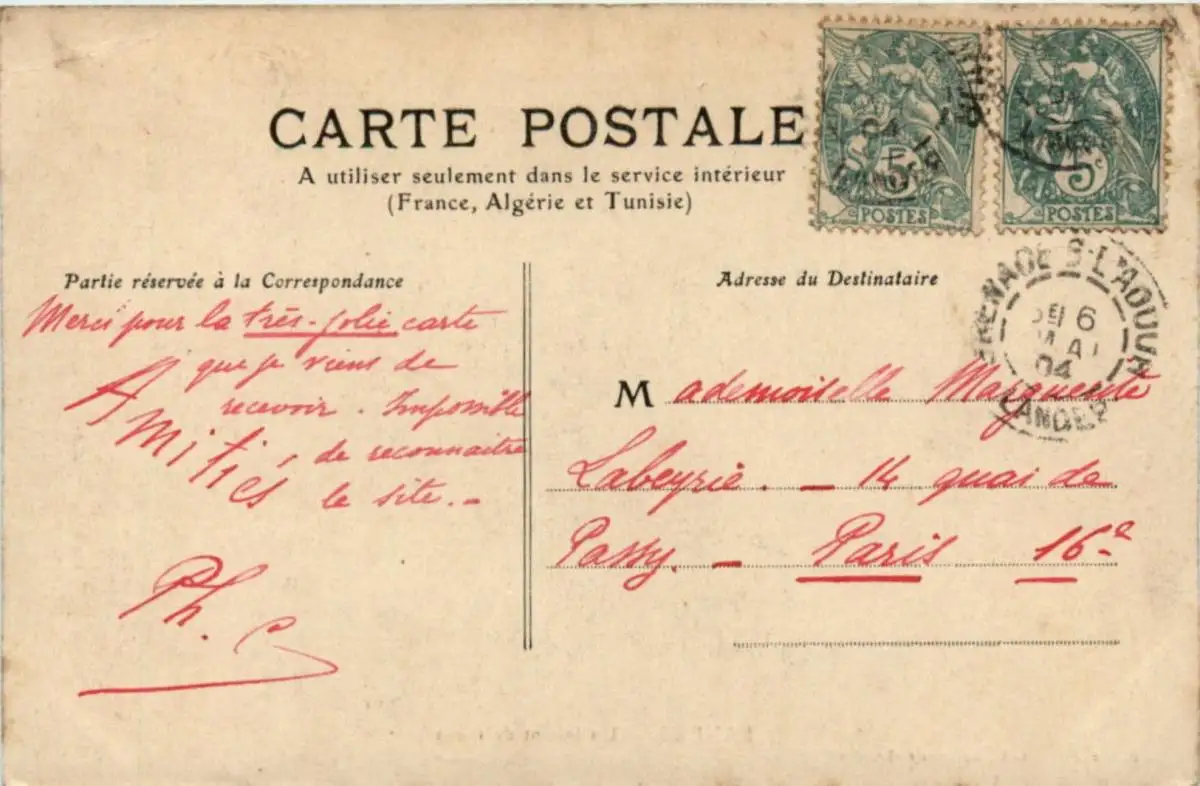 CARTE POSTALE
A utiliser seulement dans le service intérieur
(France, Algérie et Tunisie)
5c
POSTES
5c
POSTES
Partie réservée à la Correspondance
Merci pour la très-jolie carte
que je viens de
recevoir. Impossible
de reconnaitre
le site. -
Amitiés,
Ph.
Adresse du Destinataire
Mademoiselle Marguerite
Labeyrie. - 14 quai de
Passy. - Paris 16e
GRENADE S-L'ADOUR
6
MAI
04
LANDES